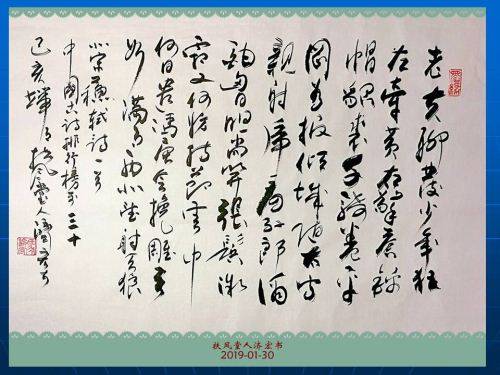 老夫聊发少年狂
左牵黄右擎苍锦
帽貂裘千骑卷平
冈为报倾城随太守
亲射虎看孙郎酒
酣胸胆尚开张鬓微
霜又何妨持节云中
何日遣冯唐会挽雕弓
如满月西北望射天狼
北宋苏轼诗一首
中国古诗排行榜第三十
己亥 扶风堂人济宏书
扶风堂人济宏书
2019-01-30